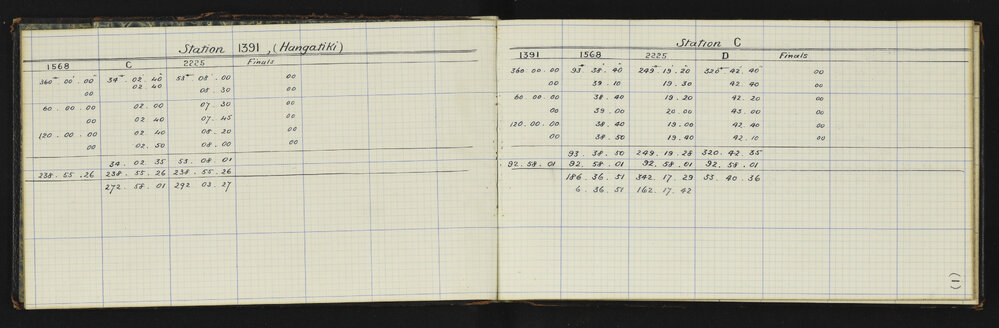 Station 1391, (Hangatiki)
1568 C 2225 Finals
360° 00' 00" 34° 02' 40" 53° 08' 00" 00
02 . 40
00 08 . 30 00
60 . 00 . 00 02 . 00 07 . 30 00
00 02 40 07 . 45 00
120 . 00 . 00 02 . 40 08 . 20 00
00 02 . 50 08 . 00 00
34 . 02 . 35 53 . 08 . 01
238 . 55 . 26 238 . 55 . 26 238 . 55 . 26
272 . 58 . 01 292 . 03 . 27
Station C
1391 1568 2225 D Finals
360 . 00 . 00 93° 38' 40" 249° 19' 20" 320° 42' 40" 00
00 39 . 10 19 . 30 42 . 40 00
60 . 00 . 00 38 . 40 19 . 20 42 . 20 00
00 39 . 00 20 . 00 43 . 00 00
120 . 00 . 00 38 . 40 19 . 00 42 . 40 00
00 38 . 50 19 . 40 42 . 10 00
93 38 . 50 249 . 19 . 28 320 . 42 . 35
92 . 58 . 01 92 . 58 . 01 92 . 58 . 01 92 . 58 . 01
186 . 36 . 51 342 . 17 . 29 53 . 40 . 36
6 . 36 . 51 162 . 17 . 42
(1)